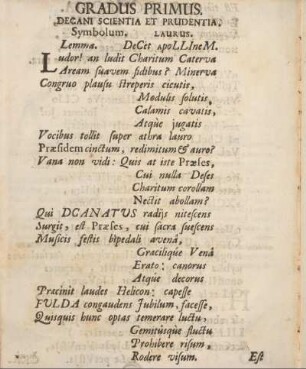 GRADUS PRIMUS.
DECANI SCIENTIA ET PRUDENTIA.
Symbolum. LAURUS.
Lemma. DeCet ApoLLIneM.
Ludor! an ludit Charitum Caterva
Aream suavem fidibus? Minerva
Congruo plausu streperis cicutis,
Modulis solutis,
Calamis cavatis,
Atque jugatis
Vocibus tollit super astra lauro
Præsidem cinctum, redimitum & auro?
Vana non vidi: Quis at iste Præses,
Cui nulla Deses
Charitum corollam
Nectit abollam?
Qui DCANATVS radijs nitescens
Surgit, est Præses, cui sacra suescens
Musicis festis bipedali avenâ,
Gracilique Venâ
Erato: canorus
Atque decorus
Præcinit laudes Helicon: capesse
FULDA congaudens Jubilum, facesse,
Quisquis hunc optas temerare luctu,
Gemitusque fluctu
Prohibere risum,
Rodere visum.
Est